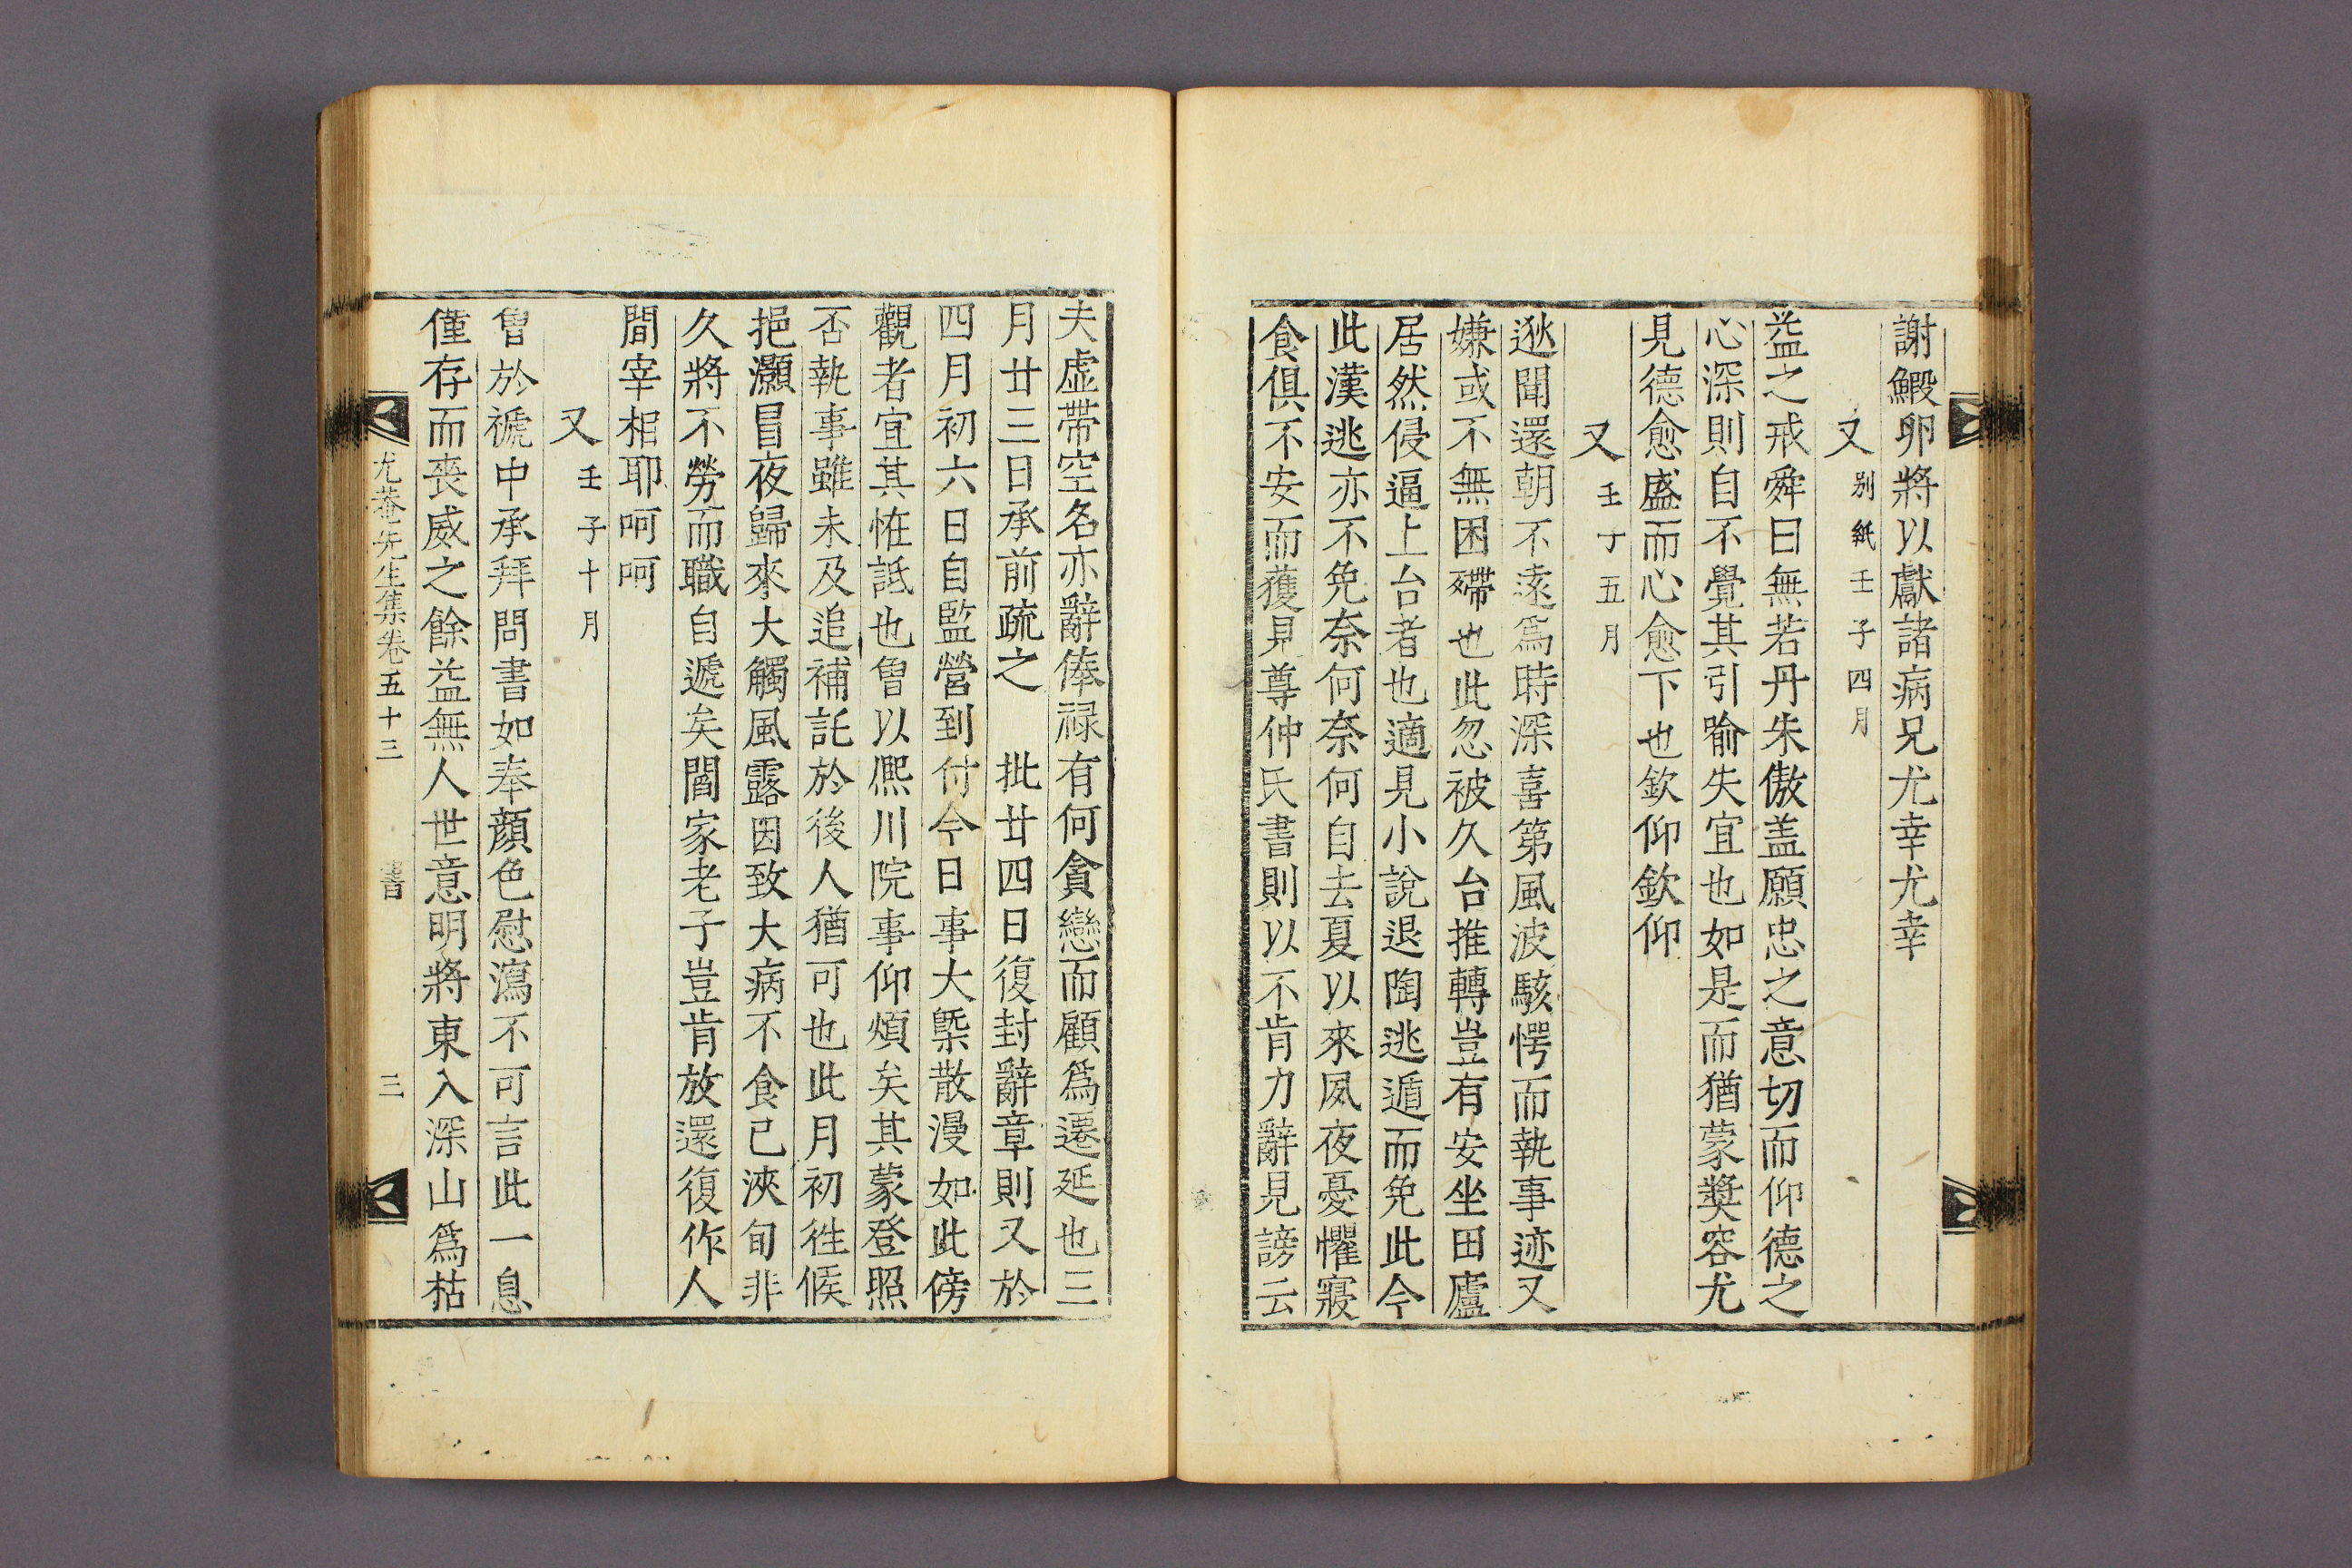 謝鰕卵將以獻諸病兄尤幸尤幸
又 別紙 壬子四月
益之戒舜曰無若丹朱傲盖願忠之意切而仰德之
心深則自不覺其引喻失宜也如是而猶蒙奬容尤
見德愈盛而心愈下也欽仰欽仰
又 壬子五月
逖聞還朝不遠爲時深喜第風波駭愕而執事迹又
嫌或不無困殢也此忽被久台推轉豈有安坐田廬
居然侵逼上台者也適見小說退陶逃遁而免此今
此漢逃亦不免奈何奈何自去夏以來夙夜憂懼寢
食俱不安而獲見尊仲氏書則以不肯力辭見謗云
夫虛帶空名亦辭俸祿有何貪戀而顧爲遷延也三
月廿三日承前疏之 批廿四日復封辭章則又於
四月初六日自監營到付今日事大槩散漫如此傍
觀者宜其恠詆也曾以凞川院事仰煩矣其蒙登照
否執事雖未及追補託於後人猶可也此月初徃候
挹灝冒夜歸來大觸風露因致大病不食已浹旬非
久將不勞而職自遞矣閻家老子豈肯放還復作人
間宰相耶呵呵
又 壬子十月
曾於褫中承拜問書如奉顏色慰瀉不可言此一息
僅存而喪威之餘益無人世意明將東入深山爲枯
尤菴先生集卷五十三 書 三